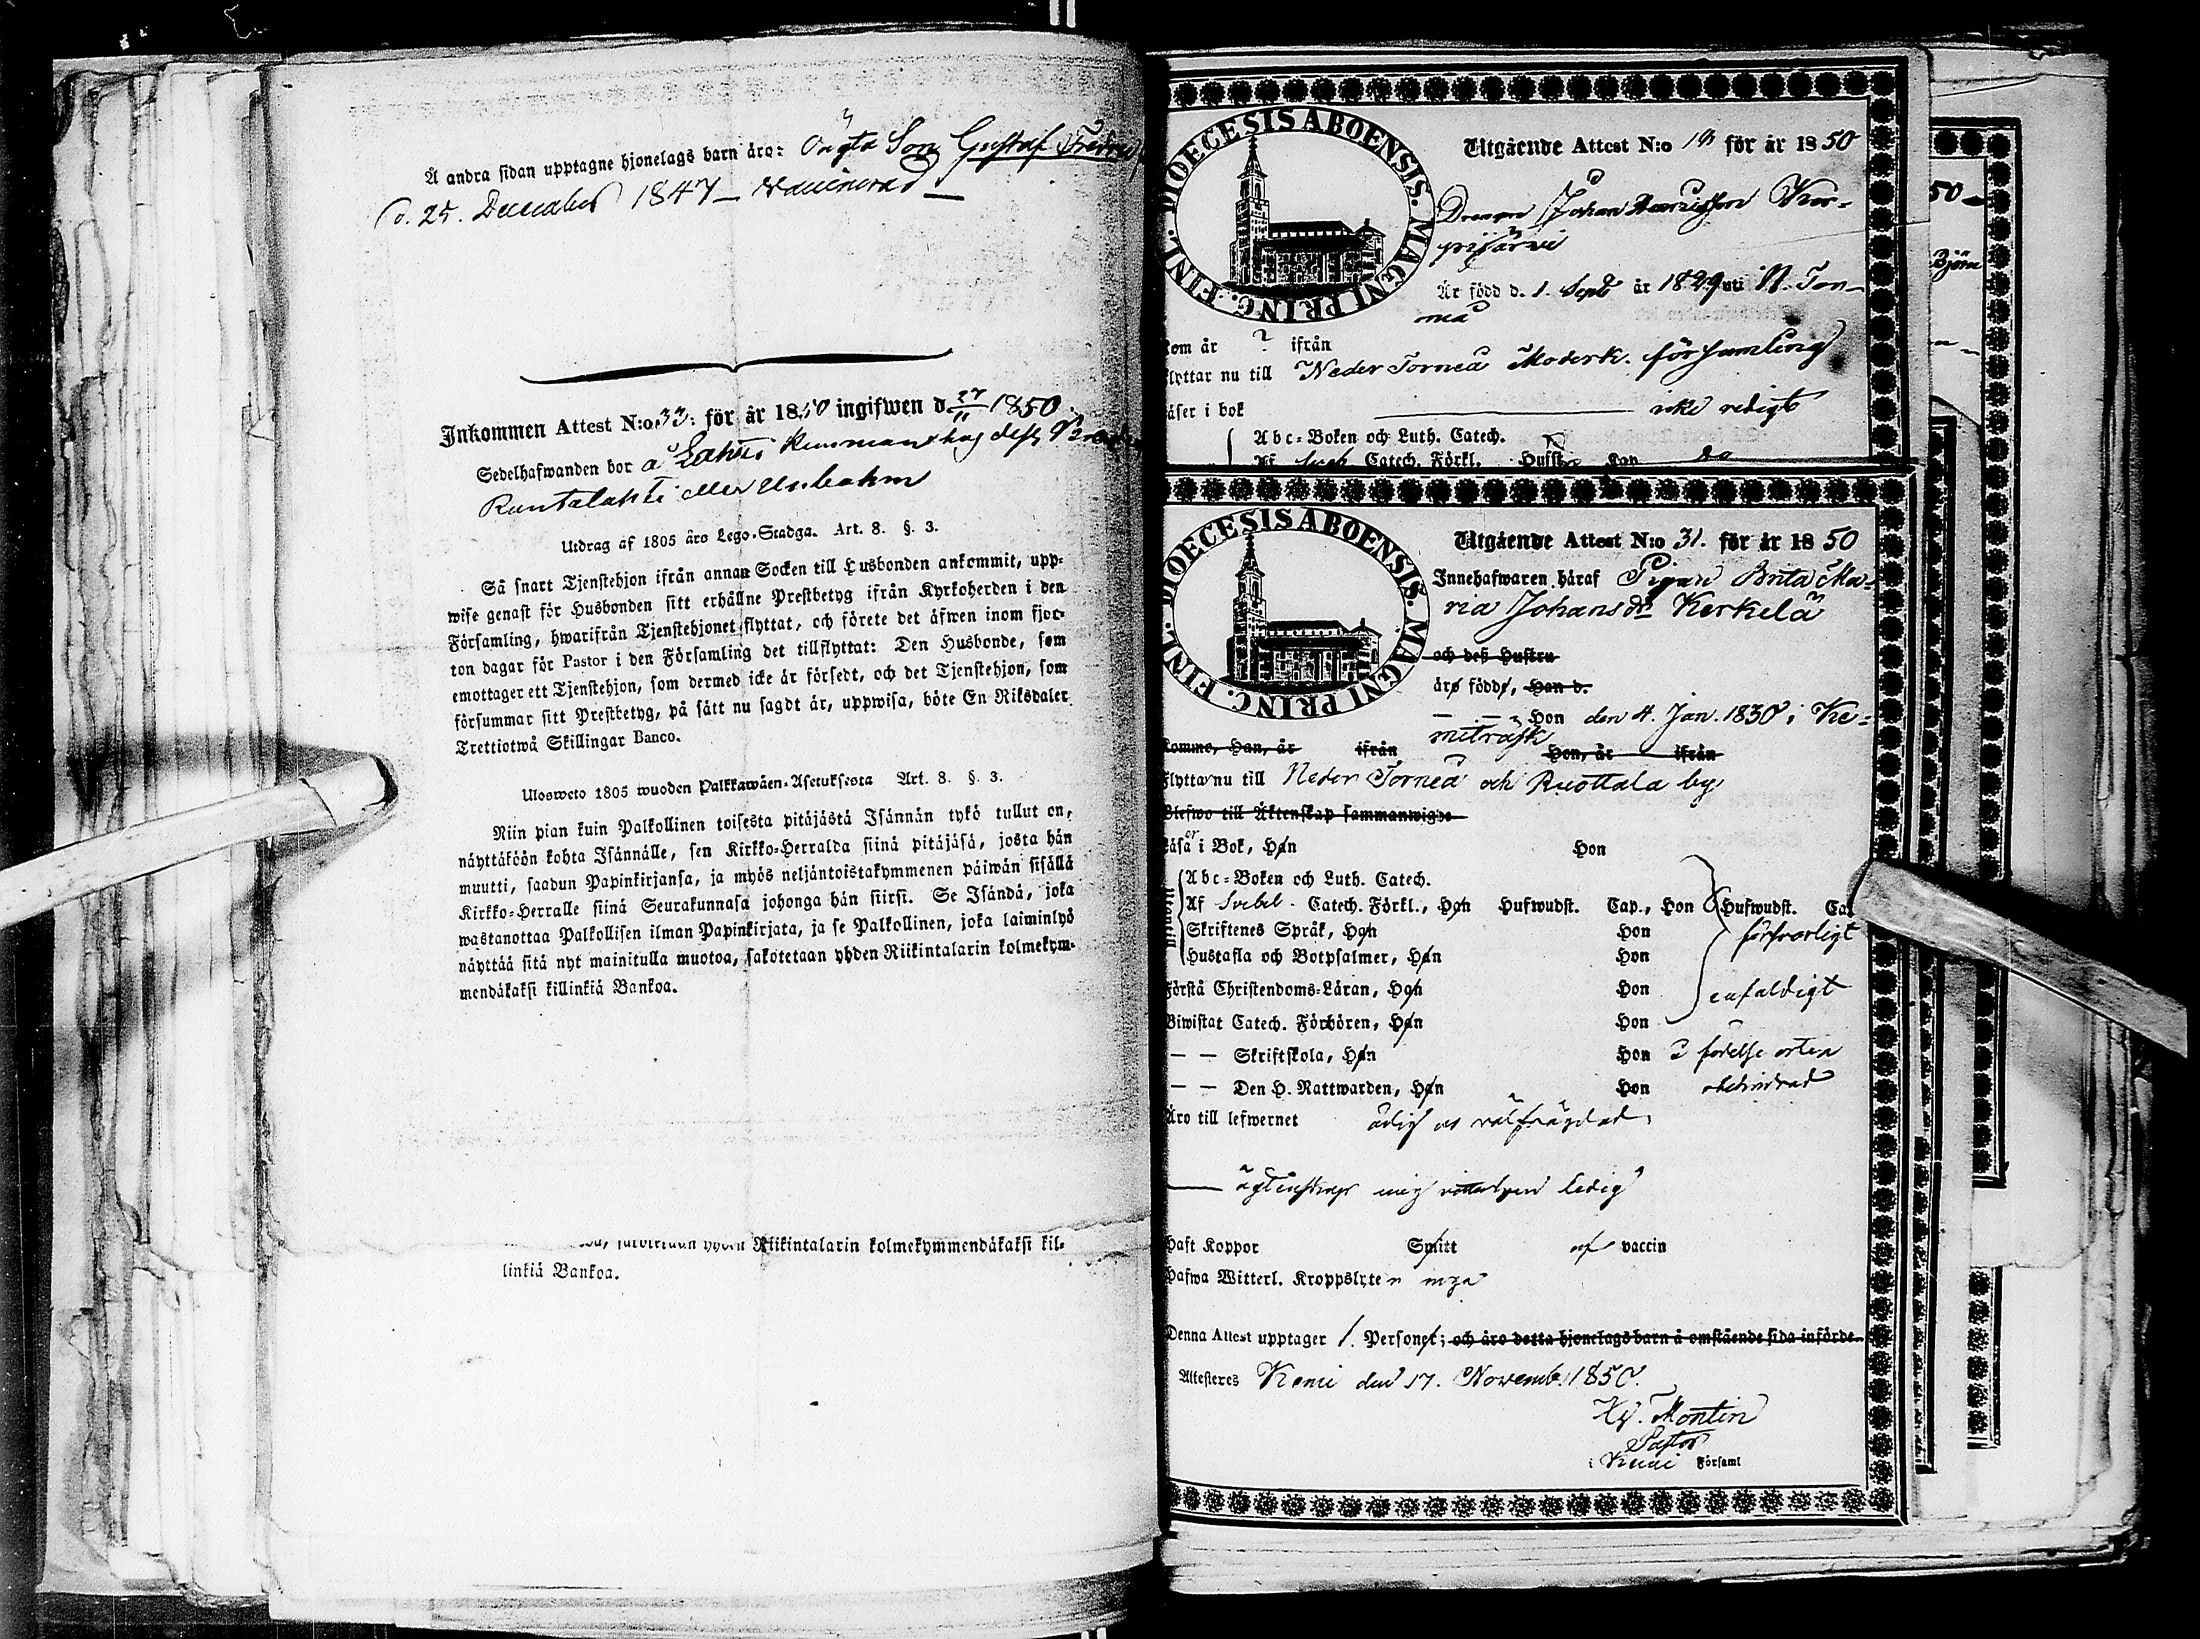 Å andra sidan upptagne hjonelags barn äro: Oägta Son Gustaf
d. 25. December 1847 — Vaccinerad —
Inkommen Attest N:o 33: för år 1850 ingifwen d. 27/11 1850.
Sedelhafwanden bor å
Rantalahti eller
Utdrag af 1805 års Lego-Stadga. Art. 8. §. 3.
Så snart Tjenstehjon ifrån annan Socken till Husbonden ankommit, upp-
wise genast för Husbonden sitt erhållne Prestbetyg ifrån Kyrkoherden i den
Församling, hwarifrån Tjenstehjonet flyttat, och förete det äfwen inom fjor-
ton dagar för Pastor i den Församling det tillflyttat: Den Husbonde, som
emottager ett Tjenstehjon, som dermed icke är försedt, och det Tjenstehjon, som
försummar sitt Prestbetyg, på sätt nu sagdt är, uppwisa, böte En Riksdaler
Trettiotwå Skillingar Banco.
Ulosweto 1805 wuoden Palkkawäen-Asetuksesta Art. 8. §. 3.
Niin pian kuin Palkollinen toisesta pitäjästä Isännän tykö tullut on,
näyttäköön kohta Isännälle, sen Kirkko-Herralda siinä pitäjäsä, josta hän
muutti, saadun Papinkirjansa, ja myös neljäntoistakymmenen päiwän sisällä
Kirkko-Herralle siinä Seurakunnasa johonga hän siirsi. Se Isändä, joka
wastanottaa Palkollisen ilman Papinkirjata, ja se Palkollinen, joka laiminlyö
näyttää sitä nyt mainitulla muotoa, sakotetaan yhden Riikintalarin kolmekym-
mendäkaksi killinkiä Bankoa.
Riikintalarin kolmekymmendäkaksi kil-
linkiä Bankoa.
DIOECESIS ABOENSIS. MAGNI PRINC. FINL.
Utgående Attest N:o för år 1850
Drengen Johan Henricsson Kor-
pijärvi
Är född d. 1. Sept år 1829 uti N. Tor-
neå
kom år ? ifrån
flyttar nu till Neder Torneå Moderk. församling
läser i bok — icke redigt
Abc-Boken och Luth. Catech.
Af Catech. Förkl.
50
Björn
DIOECESIS ABOENSIS. MAGNI PRINC. FINL.
Utgående Attest N:o 31. för år 1850
Innehafwaren häraf Pigan Brita Ma-
ria Johansdr Kerkelä
och deß Hustru
äro födde, Han d.
— — Hon den 4. Jan. 1830 i Ke-
miträsk
komme, Han, år ifrån Hon, år ifrån
flyttar nu till Neder Torneå och Ruottala by
Blefwo till Äktenskap sammanwigde
läser i Bok, Han Hon
Utantill
Abc-Boken och Luth. Catech.
Af Svebel. Catech. Förkl., Han Hufwudst. Cap., Hon Hufwudst. Ca
Skriftenes Språk, Han Hon försvarligt
Hustafla och Botpsalmer, Han Hon
Förstå Christendoms-Läran, Han Hon enfaldigt
Biwistat Catech. Förhören, Han Hon
— — Skriftskola, Han Hon i födelse orten
— — Den H. Nattwarden, Han Hon obehindrad
Äro till lefwernet ärlig och välfrägdad,
— ägtenskap mig ledig
Haft Koppor Smitt af vaccin
Hafwa Witterl. Kroppslyten inga
Denna Attest upptager 1. Person; och äro detta hjonelags barn å omstående sida införde
Attesteres Kemi den 17. Novemb. 1850.
Montin
Pastor
i Kemi Församl